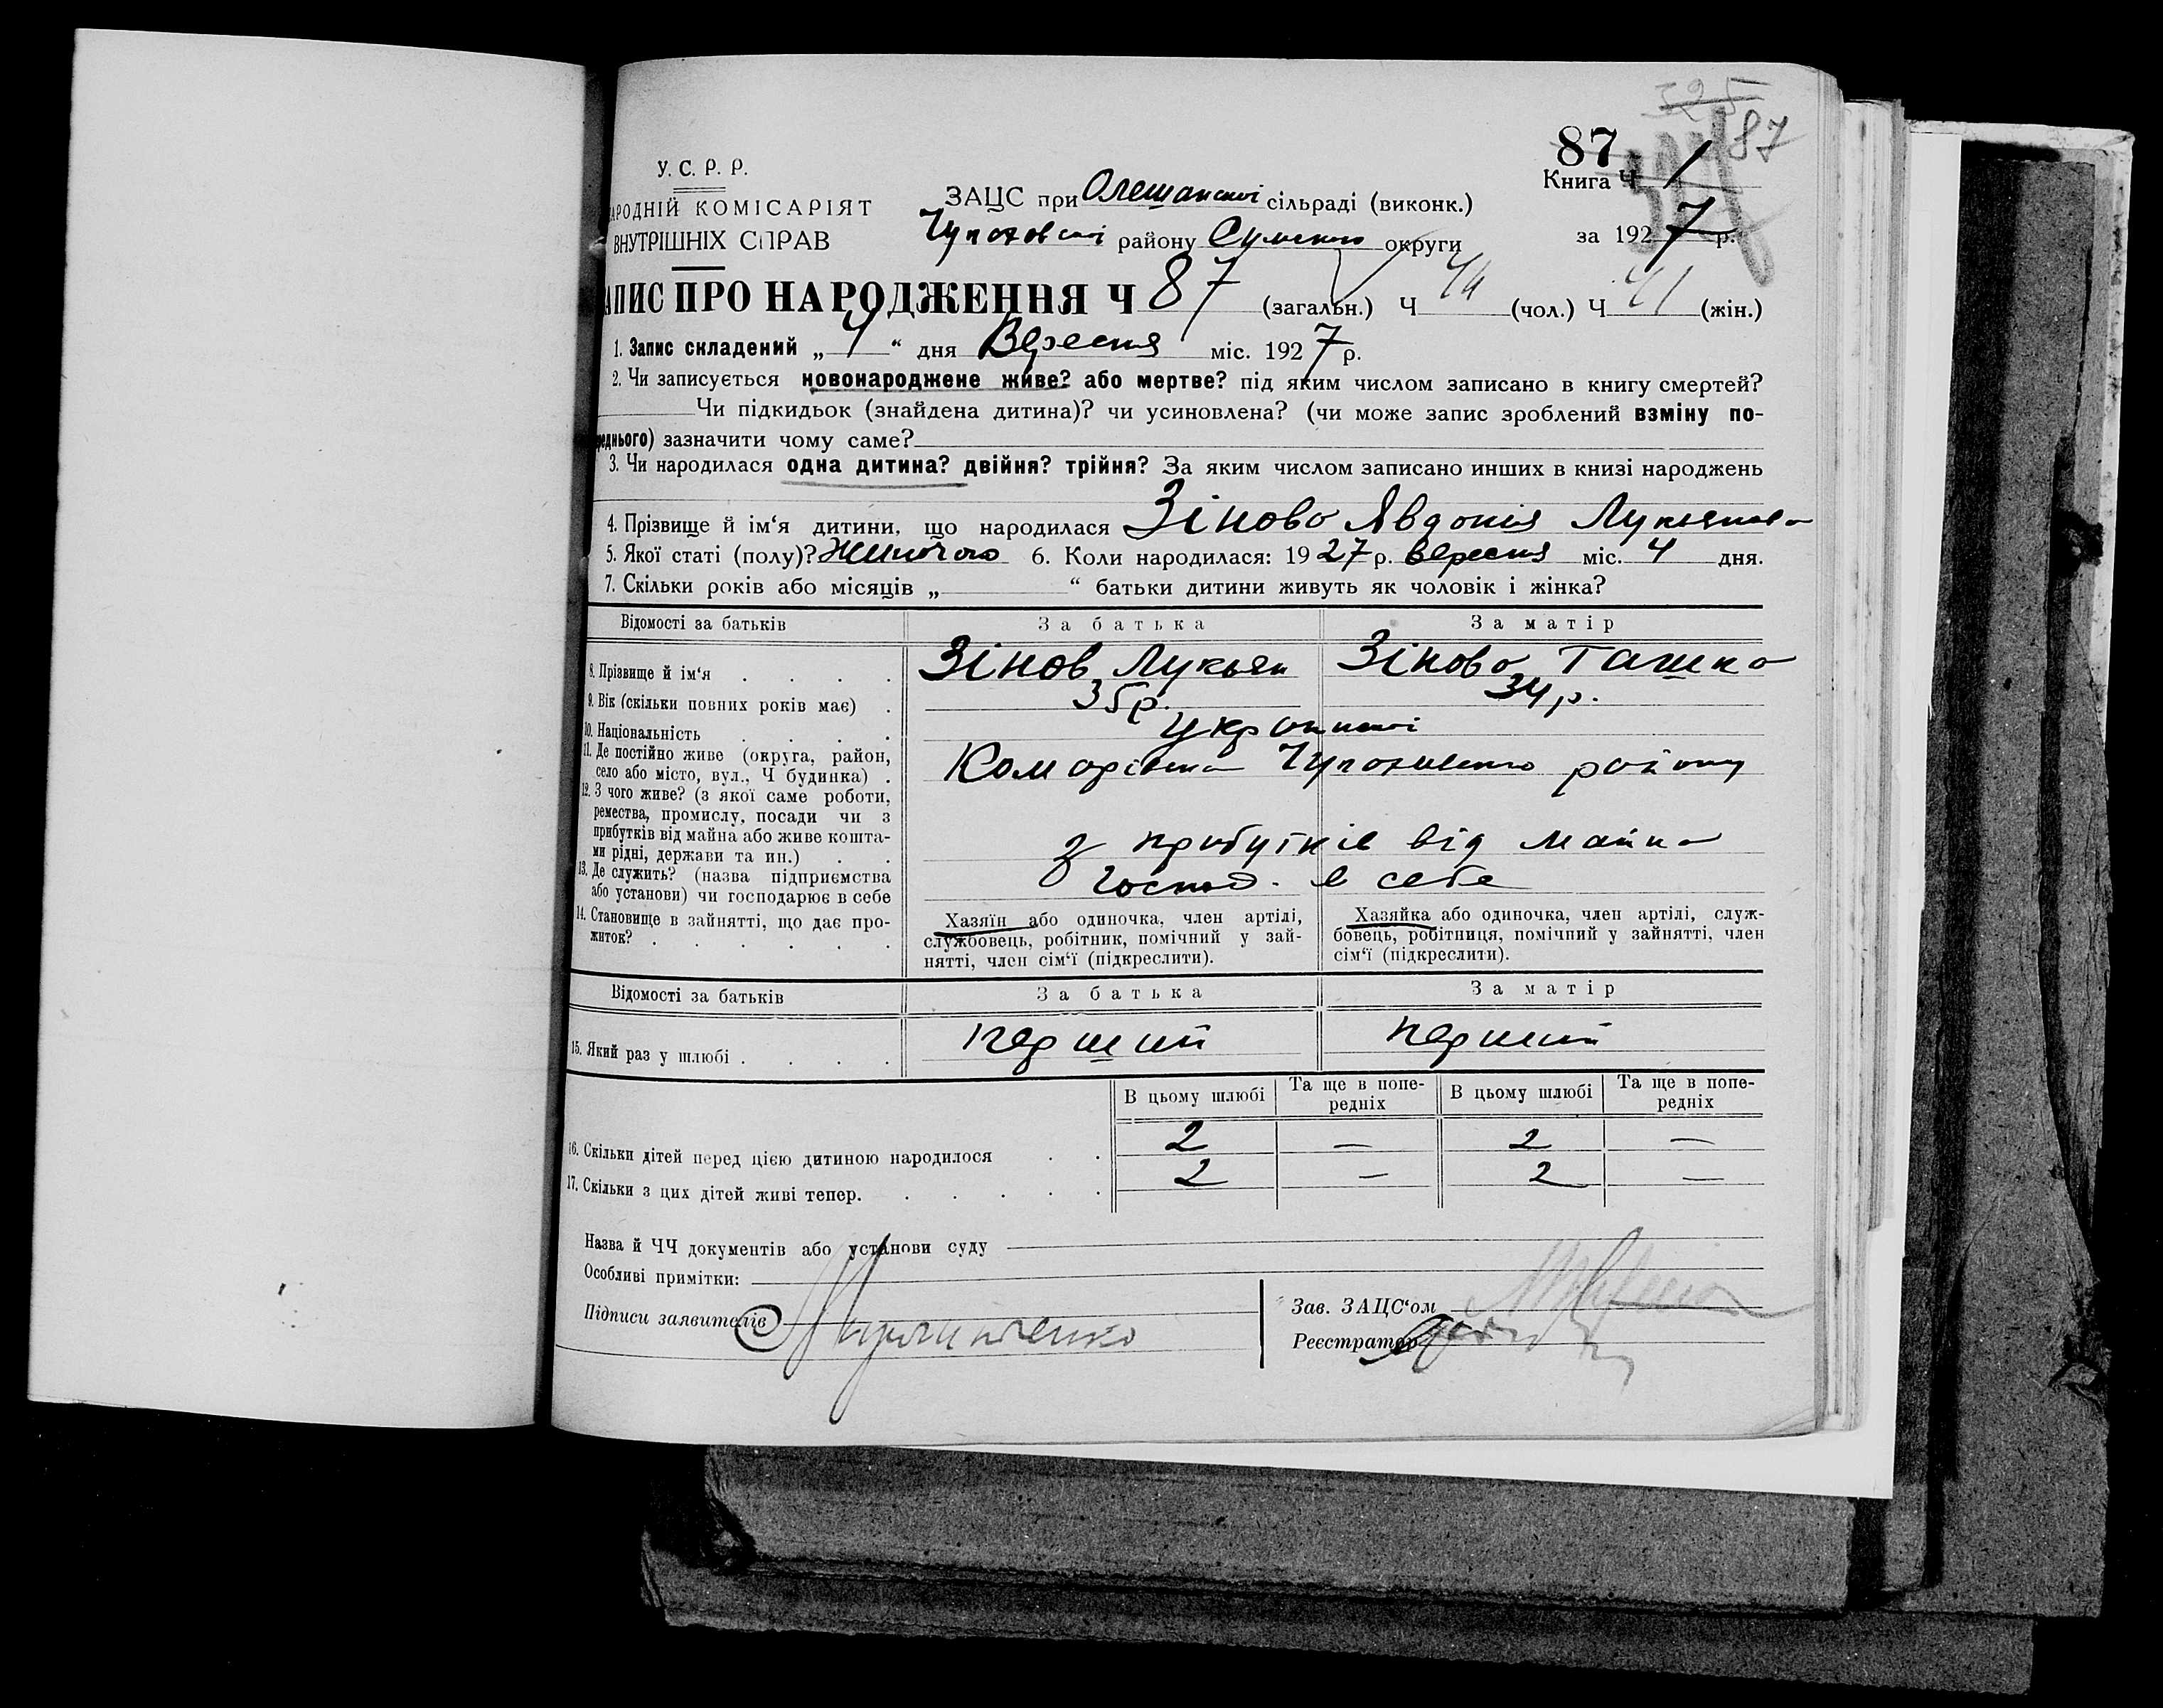 325
87 87
У. С. Р. Р.
Книга Ч 1
АРОДНІЙ КОМІСАРІЯТ
ЗАЦС при Олешанській сільраді (виконк.)
ВНУТРІШНІХ СПРАВ
району Сумської округи
за 1927 р.
АПИС ПРО НАРОДЖЕННЯ Ч 87 (загальн.) Ч (чол.) Ч 41 (жін.)
1. Запис складений „ 4 “ дня Вересня міс. 1927 р.
2. Чи записується новонароджене живе? або мертве? під яким числом записано в книгу смертей?
Чи підкидьок (знайдена дитина)? чи усиновлена? (чи може запис зроблений взміну по-
реднього) зазначити чому саме?
3. Чи народилася одна дитина? двійня? трійня? За яким числом записано инших в книзі народжень
4. Прізвище й ім‘я дитини, що народилася Зінова Явдокія Лукьянова
5. Якої статі (полу)? Жиночого 6. Коли народилася: 1927 р. вересня міс. 4 дня.
7. Скільки років або місяців „ “ батьки дитини живуть як чоловік і жінка?
Відомості за батьків За батька За матір
8. Прізвище й ім‘я Зінов Лукьян Зінова Ташка
9. Вік (скільки повних років має) 35 р. 34 р.
10. Національність
11. Де постійно живе (округа, район,
село або місто, вул., Ч будинка) району
12. З чого живе? (з якої саме роботи,
ремества, промислу, посади чи з
прибутків від майна або живе кошта-
ми рідні, держави та ин.) З прибутків від майна
13. Де служить? (назва підприємства
або установи) чи господарює в себе Господ. в себе
14. Становище в зайнятті, що дає про-
житок?
Хазяїн або одиночка, член артілі,
службовець, робітник, помічний у зай-
нятті, член сім‘ї (підкреслити).
Хазяйка або одиночка, член артілі, служ-
бовець, робітниця, помічний у зайнятті, член
сім‘ї (підкреслити).
Відомості за батьків За батька За матір
15. Який раз у шлюбі перший перший
В цьому шлюбі Та ще в попе-
редніх В цьому шлюбі Та ще в попе-
редніх
16. Скільки дітей перед цією дитиною народилося 2 — 2 —
17. Скільки з цих дітей живі тепер. 2 — 2 —
Назва й ЧЧ документів або установи суду
Особливі примітки:
Підписи заявителів
Зав. ЗАЦС‘ом
Реєстратор